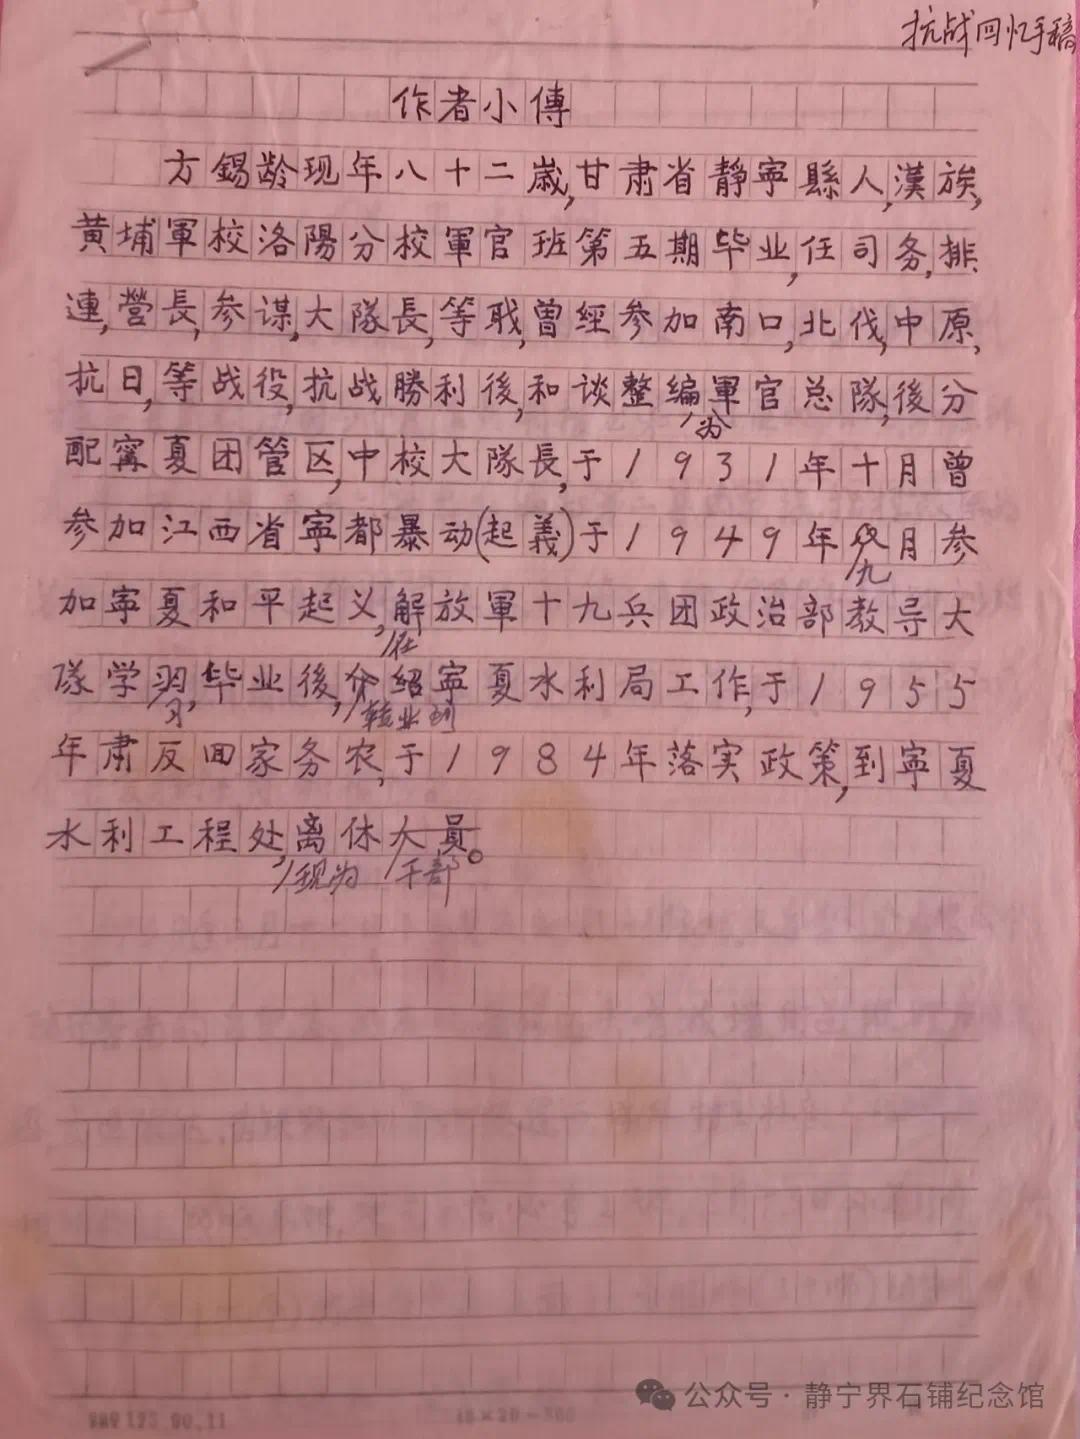 抗战回忆手稿
作者小傳
方錫龄现年八十二嵗,甘肃省靜寧縣人,漢族,
黄埔軍校洛陽分校軍官班第五期毕业,任司务,排
連,營長,参谋,大隊長,等职,曾經参加南口,北伐,中原,
抗日,等战役,抗战勝利後,和谈整编軍官总隊,後分
为
配寗夏团管区,中校大隊長,于1931年十月曾
参加江西省寧都暴动(起義)于1949年 月参
九
加寧夏和平起义,解放軍十九兵团政治部教导大
在
隊学习,毕业後,介绍寧夏水利局工作,于1955
习 转业到
年肃反回家务农,于1984年落实政策,到寧夏
水利工程处,离休人員。
现为 干部
公众号·静宁界石铺纪念馆